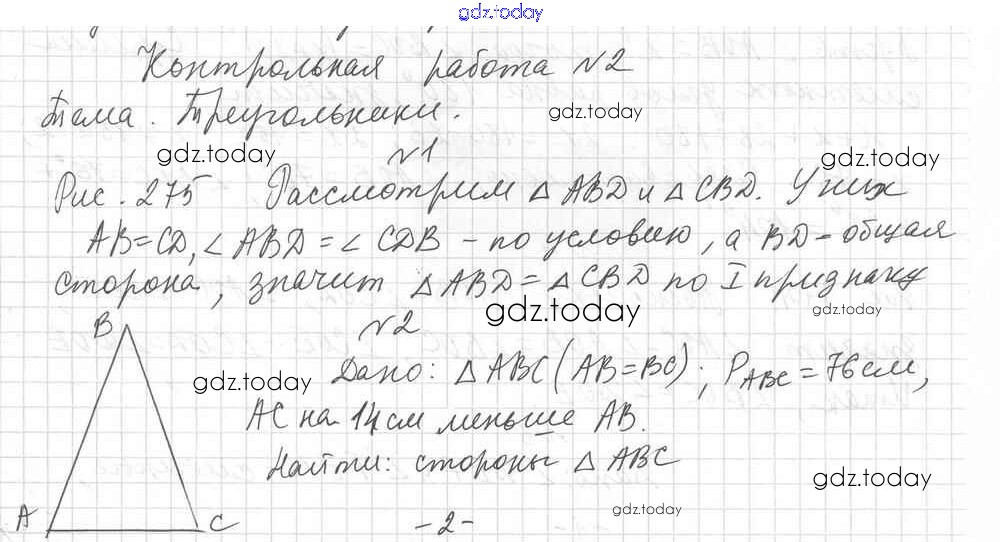 gdz.today
Контрольная работа №2
Тема. Треугольники.
gdz.today
gdz.today
№1
gdz.today
Рис. 275 Рассмотрим △ ABD и △ CBD. У них
AB=CD, ∠ ABD = ∠ CDB - по условию, а BD - общая
сторона, значит △ ABD = △ CBD по I признаку
gdz.today
gdz.today
№2
B
gdz.today
Дано: △ ABC (AB=BC); P_ABC = 76 см,
AC на 14 см меньше AB.
Найти: стороны △ ABC
gdz.today
gdz.today
A C
-2-